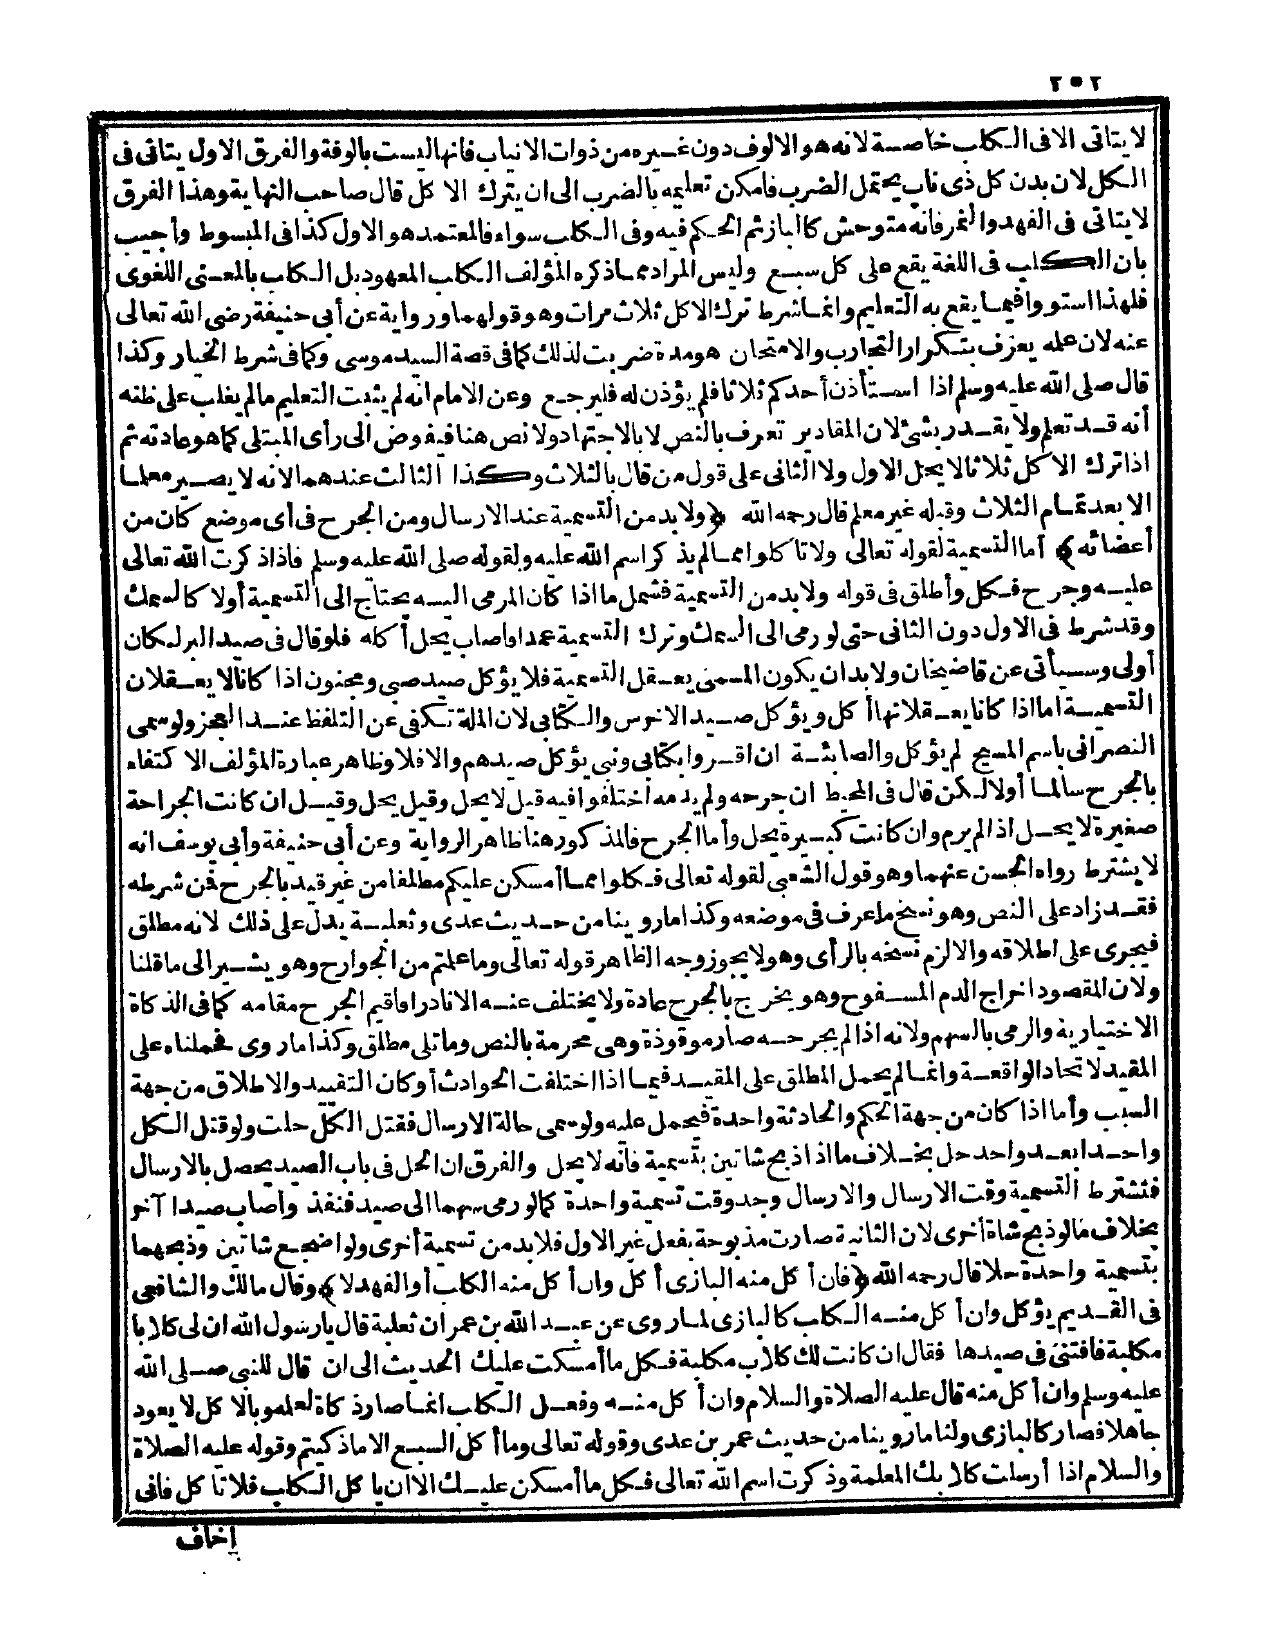 ٢٥٢
لا يتاتى الا فى الكلب خاصة لانه هو الالوف دون غيره من ذوات الانياب فانها ليست بالوفة والفرق الاول يتاتى فى
الكل لان بدن كل ذى ناب يحتمل الضرب فامكن تعليمه بالضرب الى ان يترك الا كل قال صاحب النهاية وهذا الفرق
لا يتاتى فى الفهد والنمر فانه متوحش كالبازثم الحكم فيه وفى الكلب سواء فالمعتمد هو الاول كذا فى المبسوط وأجيب
بان الكلب فى اللغة يقع على كل سبع وليس المراد مما ذكره المؤلف الكلب المعهود بل الكلب بالمعنى اللغوى
فلهذا استووا فيما يقع به التعليم وانما شرط ترك الاكل ثلاث مرات وهو قولهما ورواية عن أبى حنيفة رضى الله تعالى
عنه لان علمه يعرف بتكرار التجارب والامتحان هو مدة ضربت لذلك كما فى قصة السيد موسى وكما فى شرط الخيار وكذا
قال صلى الله عليه وسلم اذا استأذن أحدكم ثلاثا فلم يؤذن له فليرجع وعن الامام انه لم يثبت التعليم مالم يغلب على ظنه
أنه قد تعلم ولا يقدر بشئ لان المقادير تعرف بالنص لا بالاجتهاد ولا نص هنا فيفوض الى رأى المبتلى كما هو عادته ثم
اذا ترك الاكل ثلاثا لا يحل الاول ولا الثانى على قول من قال بالثلاث وكذا الثالث عندهما لانه لا يصير معلما
الا بعد تمام الثلاث وقبله غير معلم قال رحمه الله ﴿ولا بد من التسمية عند الارسال ومن الجرح فى أى موضع كان من
أعضائه﴾ أما التسمية لقوله تعالى ولا تأكلوا مما لم يذكر اسم الله عليه ولقوله صلى الله عليه وسلم فاذا ذكرت الله تعالى
عليه وجرح فكل وأطلق فى قوله ولا بد من التسمية فشمل ما اذا كان المرمى اليه يحتاج الى التسمية أولا كالسمك
وقد شرط فى الاول دون الثانى حتى لو رمى الى السمك وترك التسمية عمدا فاصاب يحل أكله فلو قال فى صيد البر لكان
أولى وسيأتى عن قاضيخان ولا بد ان يكون المسمى يعقل التسمية فلا يؤكل صيد صبى ومجنون اذا كانا لا يعقلان
التسمية اما اذا كانا يعقلانها أكل ويؤكل صيد الاخرس والكتابى لان الملة تكفى عن التلفظ عند العجز ولو سمى
النصرانى باسم المسيح لم يؤكل والصابئة ان اقروا بكتابى ونبى يؤكل صيدهم والا فلا وظاهر عبارة المؤلف الا كتفاء
بالجرح سالما أولا لكن قال فى المحيط ان جرحه ولم يدمه اختلفوا فيه قيل لا يحل وقيل يحل وقيل ان كانت الجراحة
صغيرة لا يحل اذا لم يرم وان كانت كبيرة يحل وأما الجرح فالمذكور هنا ظاهر الرواية وعن أبى حنيفة وأبى يوسف انه
لا يشترط رواه الحسن عنهما وهو قول الشعبى لقوله تعالى فكلوا مما أمسكن عليكم مطلقا من غير قيد بالجرح فمن شرطه
فقد زاد على النص وهو نسخ ما عرف فى موضعه وكذا ما روينا من حديث عدى وثعلبة يدل على ذلك لانه مطلق
فيجرى على اطلاقه والا لزم نسخه بالرأى وهو لا يجوز وجه الظاهر قوله تعالى وما علمتم من الجوارح وهو يشير الى ما قلنا
ولان المقصود اخراج الدم المسفوح وهو يخرج بالجرح عادة ولا يختلف عنه الا نادرا فأقيم الجرح مقامه كما فى الذكاة
الاختيارية والرمى بالسهم ولانه اذا لم يجرحه صار موقوذة وهى محرمة بالنص وما تلى مطلق وكذا ما روى فحملناه على
المقيد لاتحاد الواقعة وانما لم يحمل المطلق على المقيد فيما اذا اختلفت الحوادث أو كان التقييد والاطلاق من جهة
السبب وأما اذا كان من جهة الحكم والحادثة واحدة فيحمل عليه ولو سمى حالة الارسال فقتل الكل حلت ولو قتل الكل
واحدا بعد واحد حل بخلاف ما اذا ذبح شاتين بتسمية فانه لا يحل والفرق ان الحل فى باب الصيد يحصل بالارسال
فتشترط التسمية وقت الارسال والارسال وجد وقت تسمية واحدة كما لو رمى سهما الى صيد فنفذ وأصاب صيدا آخر
بخلاف ما لو ذبح شاة أخرى لان الثانية صارت مذبوحة بفعل غير الاول فلا بد من تسمية أخرى ولو اضجع شاتين وذبحهما
بتسمية واحدة حلا قال رحمه الله ﴿فان أكل منه البازى أكل وان أكل منه الكلب أو الفهد لا﴾ وقال مالك والشافعى
فى القديم يؤكل وان أكل منه الكلب كالبازى لما روى عن عبد الله بن عمر ان ثعلبة قال يا رسول الله ان لى كلابا
مكلبة فافتنى فى صيدها فقال ان كانت لك كلاب مكلبة فكل ما أمسكت عليك الحديث الى ان قال للنبى صلى الله
عليه وسلم وان أكل منه قال عليه الصلاة والسلام وان أكل منه وفعل الكلب انما صار ذكاة لعلمه وبالاكل لا يعود
جاهلا فصار كالبازى ولنا ما روينا من حديث عمر بن عدى وقوله تعالى وما أكل السبع الا ما ذكيتم وقوله عليه الصلاة
والسلام اذا أرسلت كلابك المعلمة وذكرت اسم الله تعالى فكل ما أمسكن عليك الا ان ياكل الكلب فلا تأكل فانى
إخاف